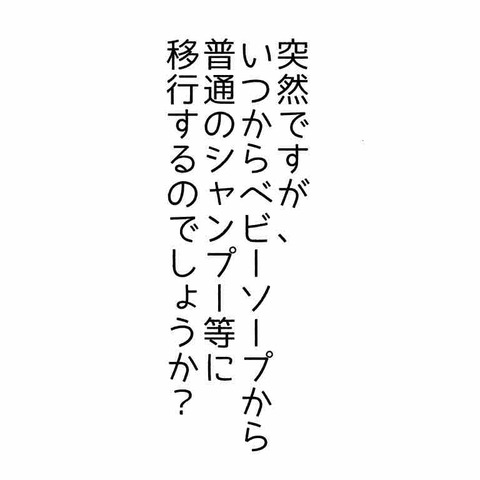 突然ですが、
いつからベビーソープから
普通のシャンプー等に
移行するのでしょうか?